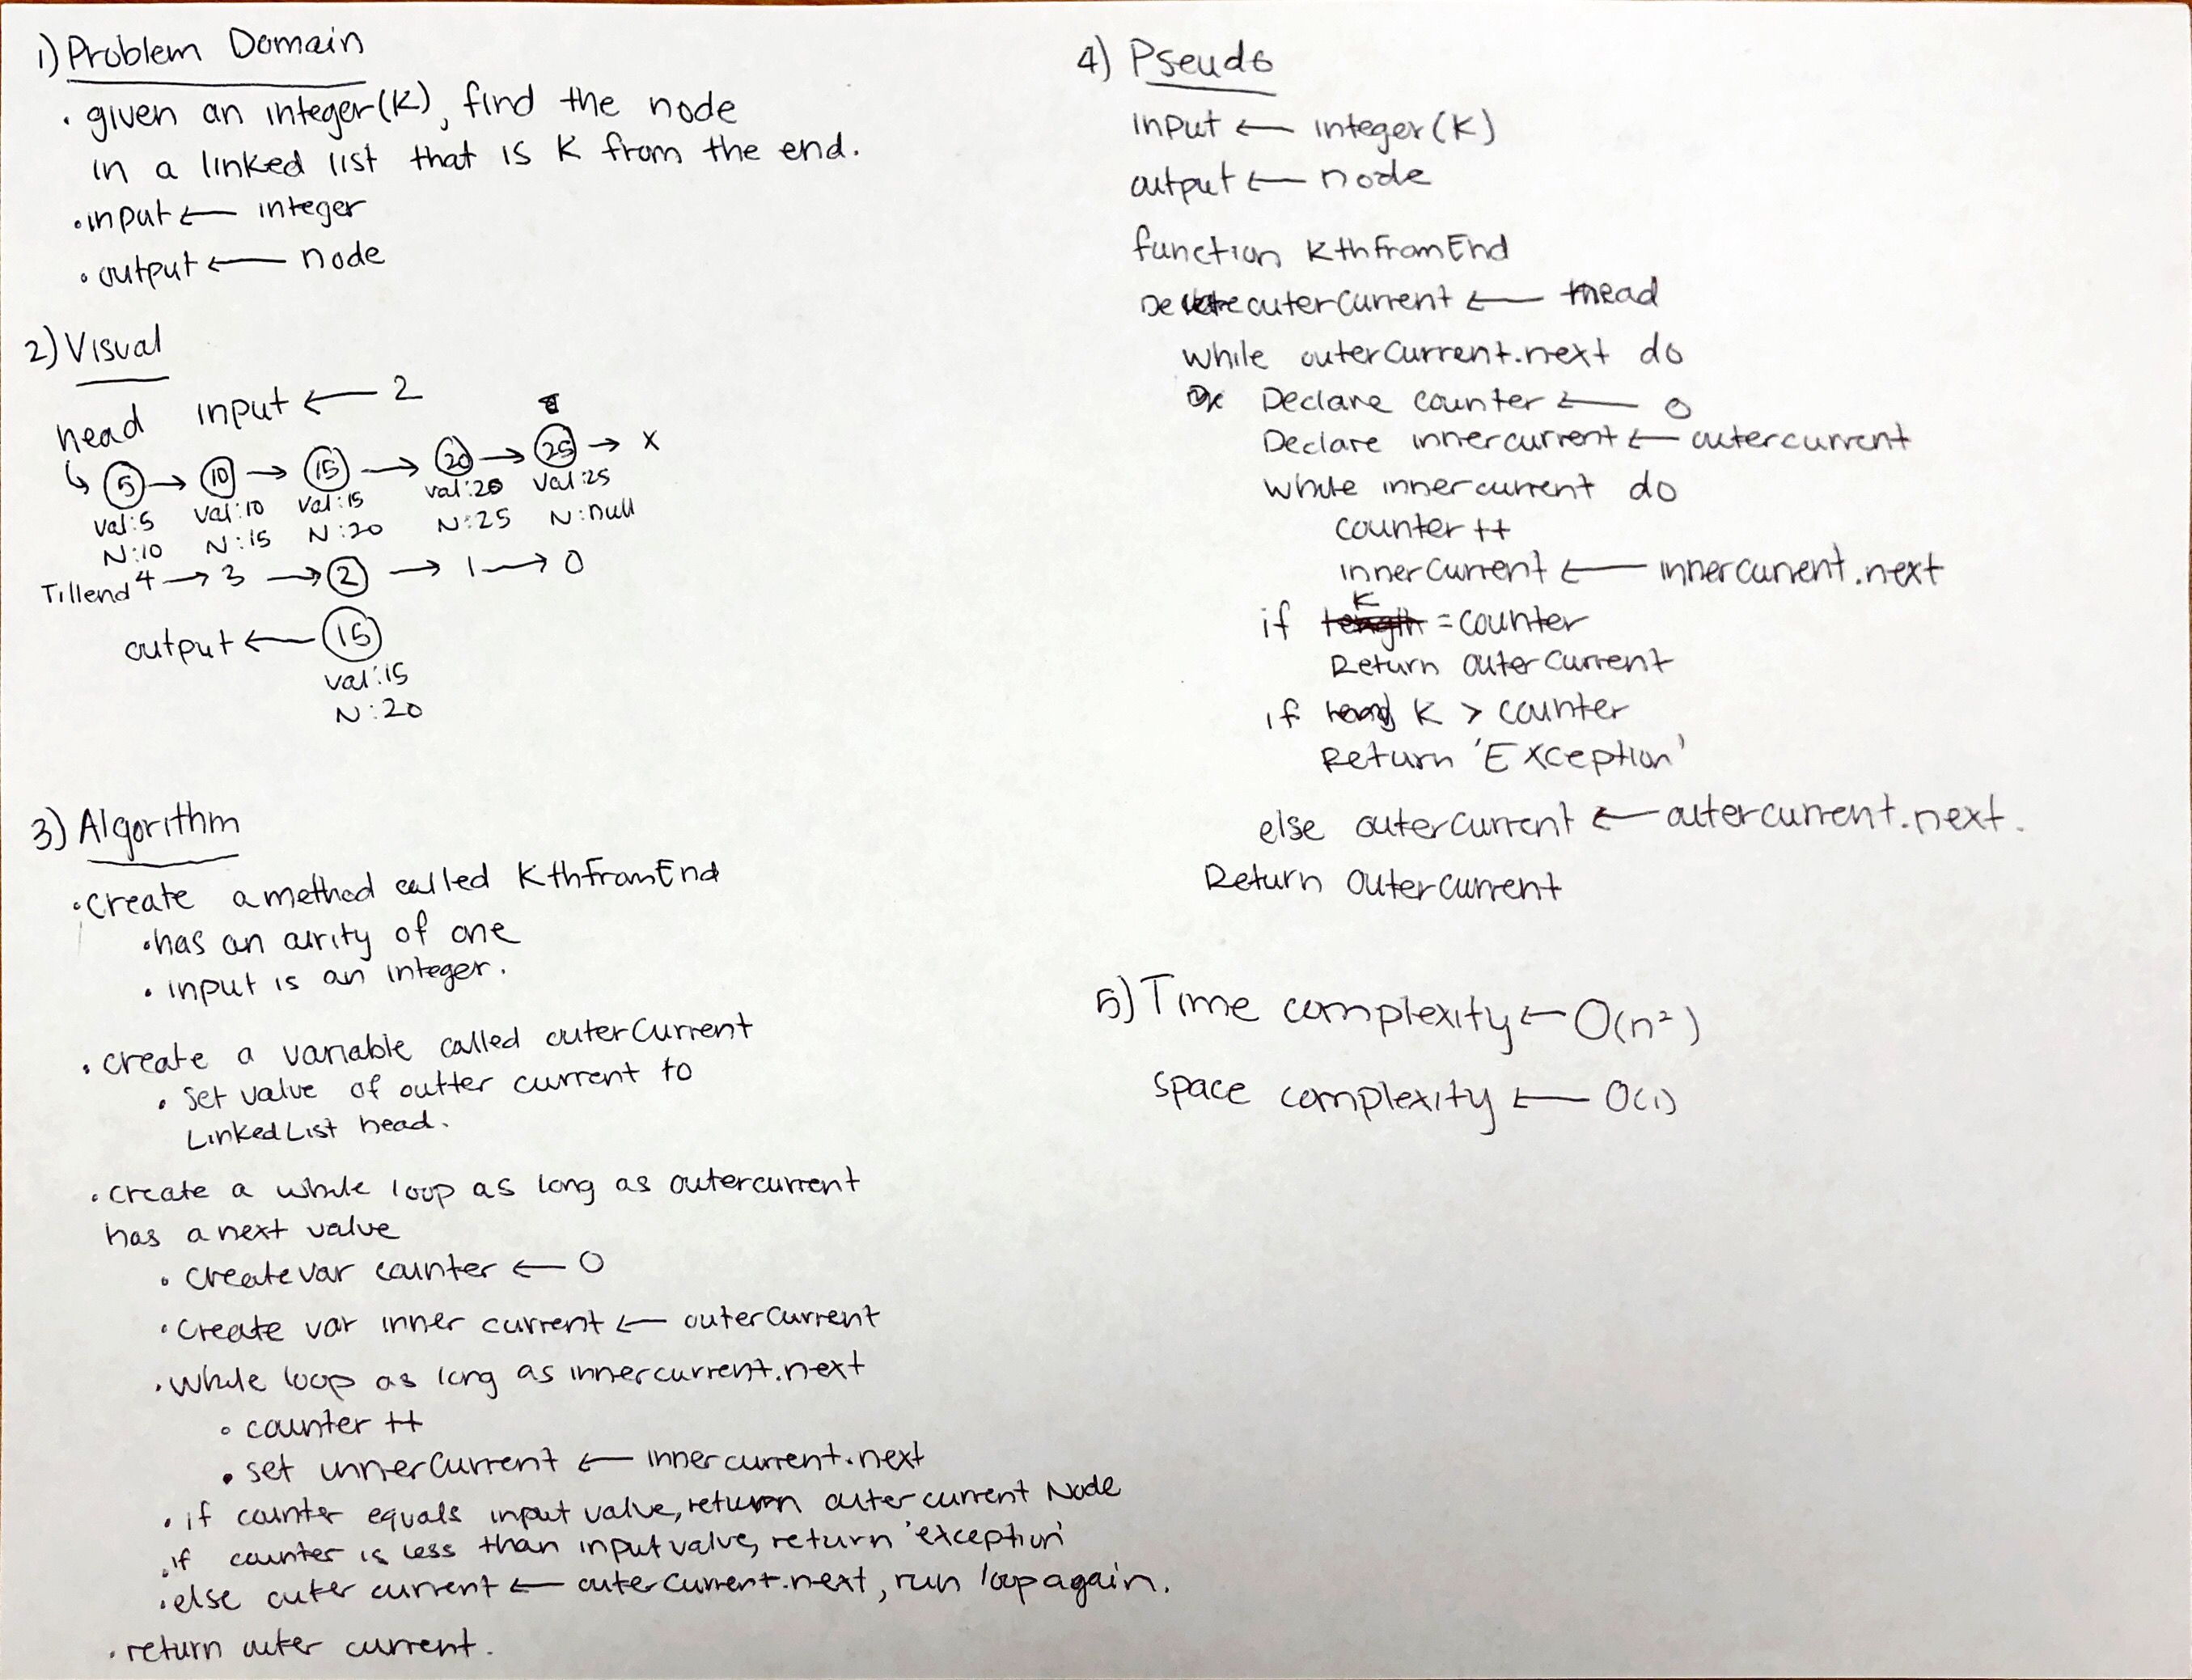 1) Problem Domain
· given an integer(K), find the node
in a linked list that is K from the end.
· input ← integer
· output ← node
2) Visual
head input ← 2
↳ 5 → 10 → 15 → 20 → 25 → X
val:5 val:10 val:15 val:20 val:25
N:10 N:15 N:20 N:25 N:null
Till end 4 → 3 → 2 → 1 → 0
output ← 15
val:15
N:20
3) Algorithm
· create a method called KthFromEnd
· has an airity of one
· input is an integer.
· create a variable called outerCurrent
· Set value of outter current to
Linked List head.
· create a while loop as long as outercurrent
has a next value
· create var counter ← 0
· create var inner current ← outerCurrent
· while loop as long as innercurrent.next
· counter ++
· set innerCurrent ← innercurrent.next
· if counter equals input value, return outer current Node
· if counter is less than input value, return 'exception'
· else outer current ← outercurrent.next, run loop again.
· return outer current.
4) Pseudo
input ← integer(K)
output ← node
function KthFromEnd
Declare outerCurrent ← head
while outerCurrent.next do
Declare counter ← 0
Declare innercurrent ← outercurrent
while innercurrent do
counter ++
innerCurrent ← innercurrent.next
if K = counter
Return outerCurrent
if K > counter
Return 'Exception'
else outercurrent ← outercurrent.next.
Return outercurrent
5) Time complexity ← O(n²)
space complexity ← O(1)